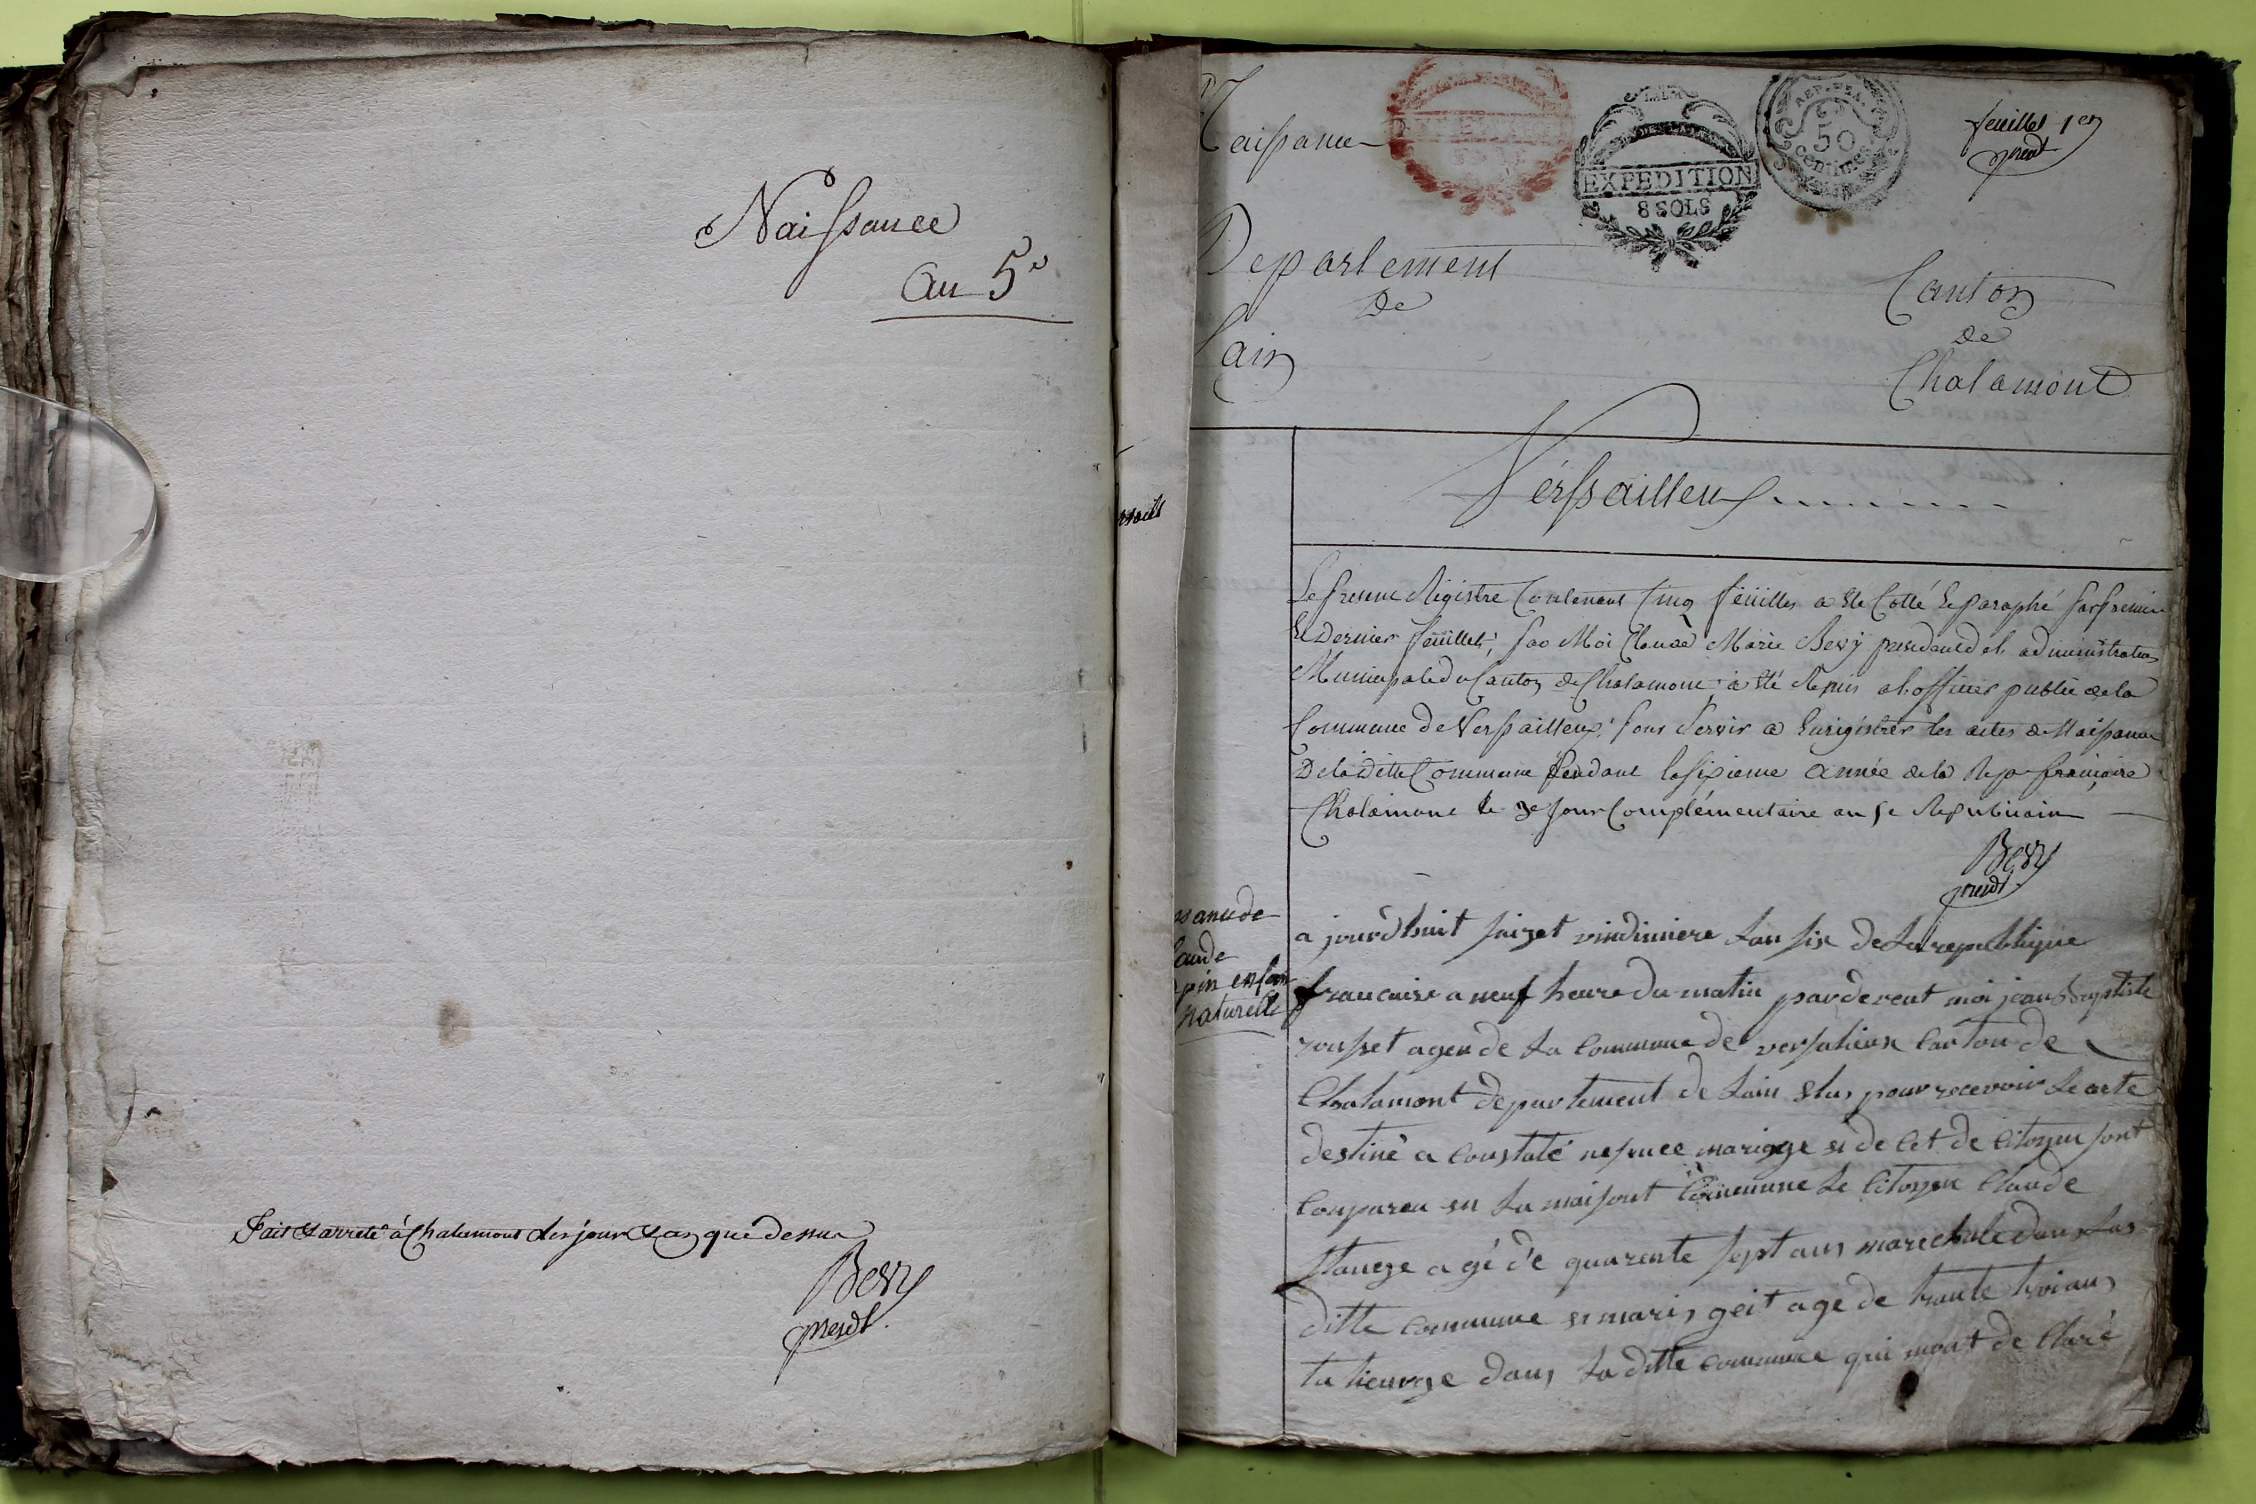 Naissance
an 5e
Fait & arreté à Chalamont les jour & an que dessus
Bevy
presdt.
Naissance
EXPEDITION
8 SOLS
REP. FRA.
50
centimes
feuillet 1er
presdt
Departement
de
Lain
Canton
de
Chalamont
Verssailleux
Le present Régistre Contenant Cinq feüilles a été Cotté et paraphé par premier
et Dernier feüillet, par Moi Claude Marie Bevy president de l'administration
Municipale du Canton de Chalamont, a été Remis a l'officier public de la
Commune de Verssailleux, pour Servir a Enrigistrer les actes de Naissance
De ladditte Commune pendant la sixieme année de la Rep. française
Chalamont le 3e Jour Complémentaire an 5e Republicain
Bevy
presdt.
ssance de
laude
pin enfan
naturelle
a jourdhuit saizet vindimiere lan six de la republique
francaise a neuf heure du matin pardevent moi jean Baptiste
rousset agen de la commune de versalieux canton de
Chalamont departement de lain elus pour recevoir le acte
destiné a constaté nesence mariage et de cet de citoyen sont
comparu en la maisont commune le citoyen Claude
agé de quarente sept ans marechale dans las
ditte commune et maris geit age de trante troi ans
dans la ditte commune qui mont de claré